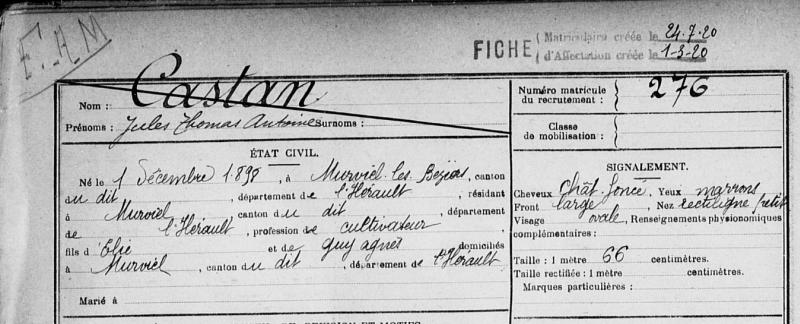 F.A.M
FICHE { Matriculaire créée le 24.7.20
d'Affectation créée le 1-3-20
Nom : Castan
Prénoms : Jules Thomas Antoine Surnoms :
Numéro matricule du recrutement : } 276
Classe de mobilisation : }
ÉTAT CIVIL.
Né le 1 Décembre 1898, à Murviel-les-Beziers, canton
du dit, département de l'Hérault, résidant
à Murviel canton du dit, département
de l'Hérault, profession de cultivateur
fils d'Elie et de Guy agnès domiciliés
à Murviel, canton du dit, département de l'Hérault
Marié à
SIGNALEMENT.
Cheveux chât. foncé Yeux marrons
Front large Nez rectiligne petit
Visage ovale, Renseignements physionomiques
complémentaires :
Taille : 1 mètre 66 centimètres.
Taille rectifiée : 1 mètre centimètres.
Marques particulières :